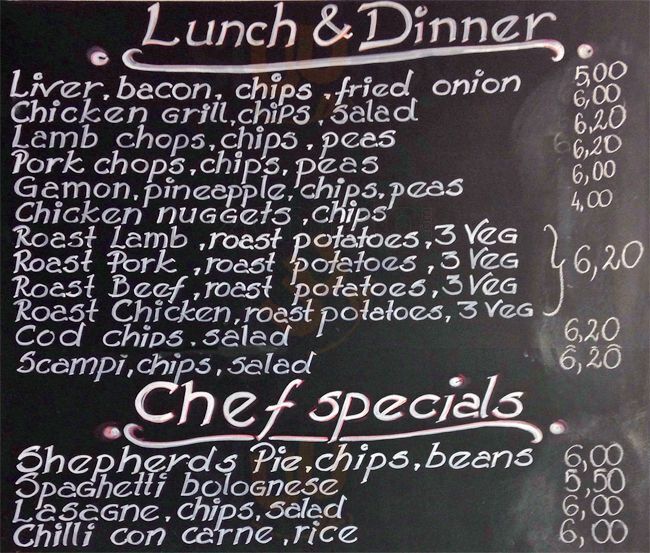 Lunch & Dinner
Liver, bacon, chips, fried onion 5,00
Chicken Grill, chips, salad 6,00
Lamb chops, chips, peas 6,20
Pork chops, chips, peas 6,20
Gamon, pineapple, chips, peas 6,00
Chicken nuggets, chips 4,00
Roast Lamb, roast potatoes, 3 Veg
Roast Pork, roast potatoes, 3 Veg
Roast Beef, roast potatoes, 3 Veg
Roast Chicken, roast potatoes, 3 Veg
6,20
Cod chips, salad 6,20
Scampi, chips, salad 6,20
Chef specials
Shepherds Pie, chips, beans 6,00
Spaghetti bolognese 5,50
Lasagne, chips, salad 6,00
Chilli con carne, rice 6,00